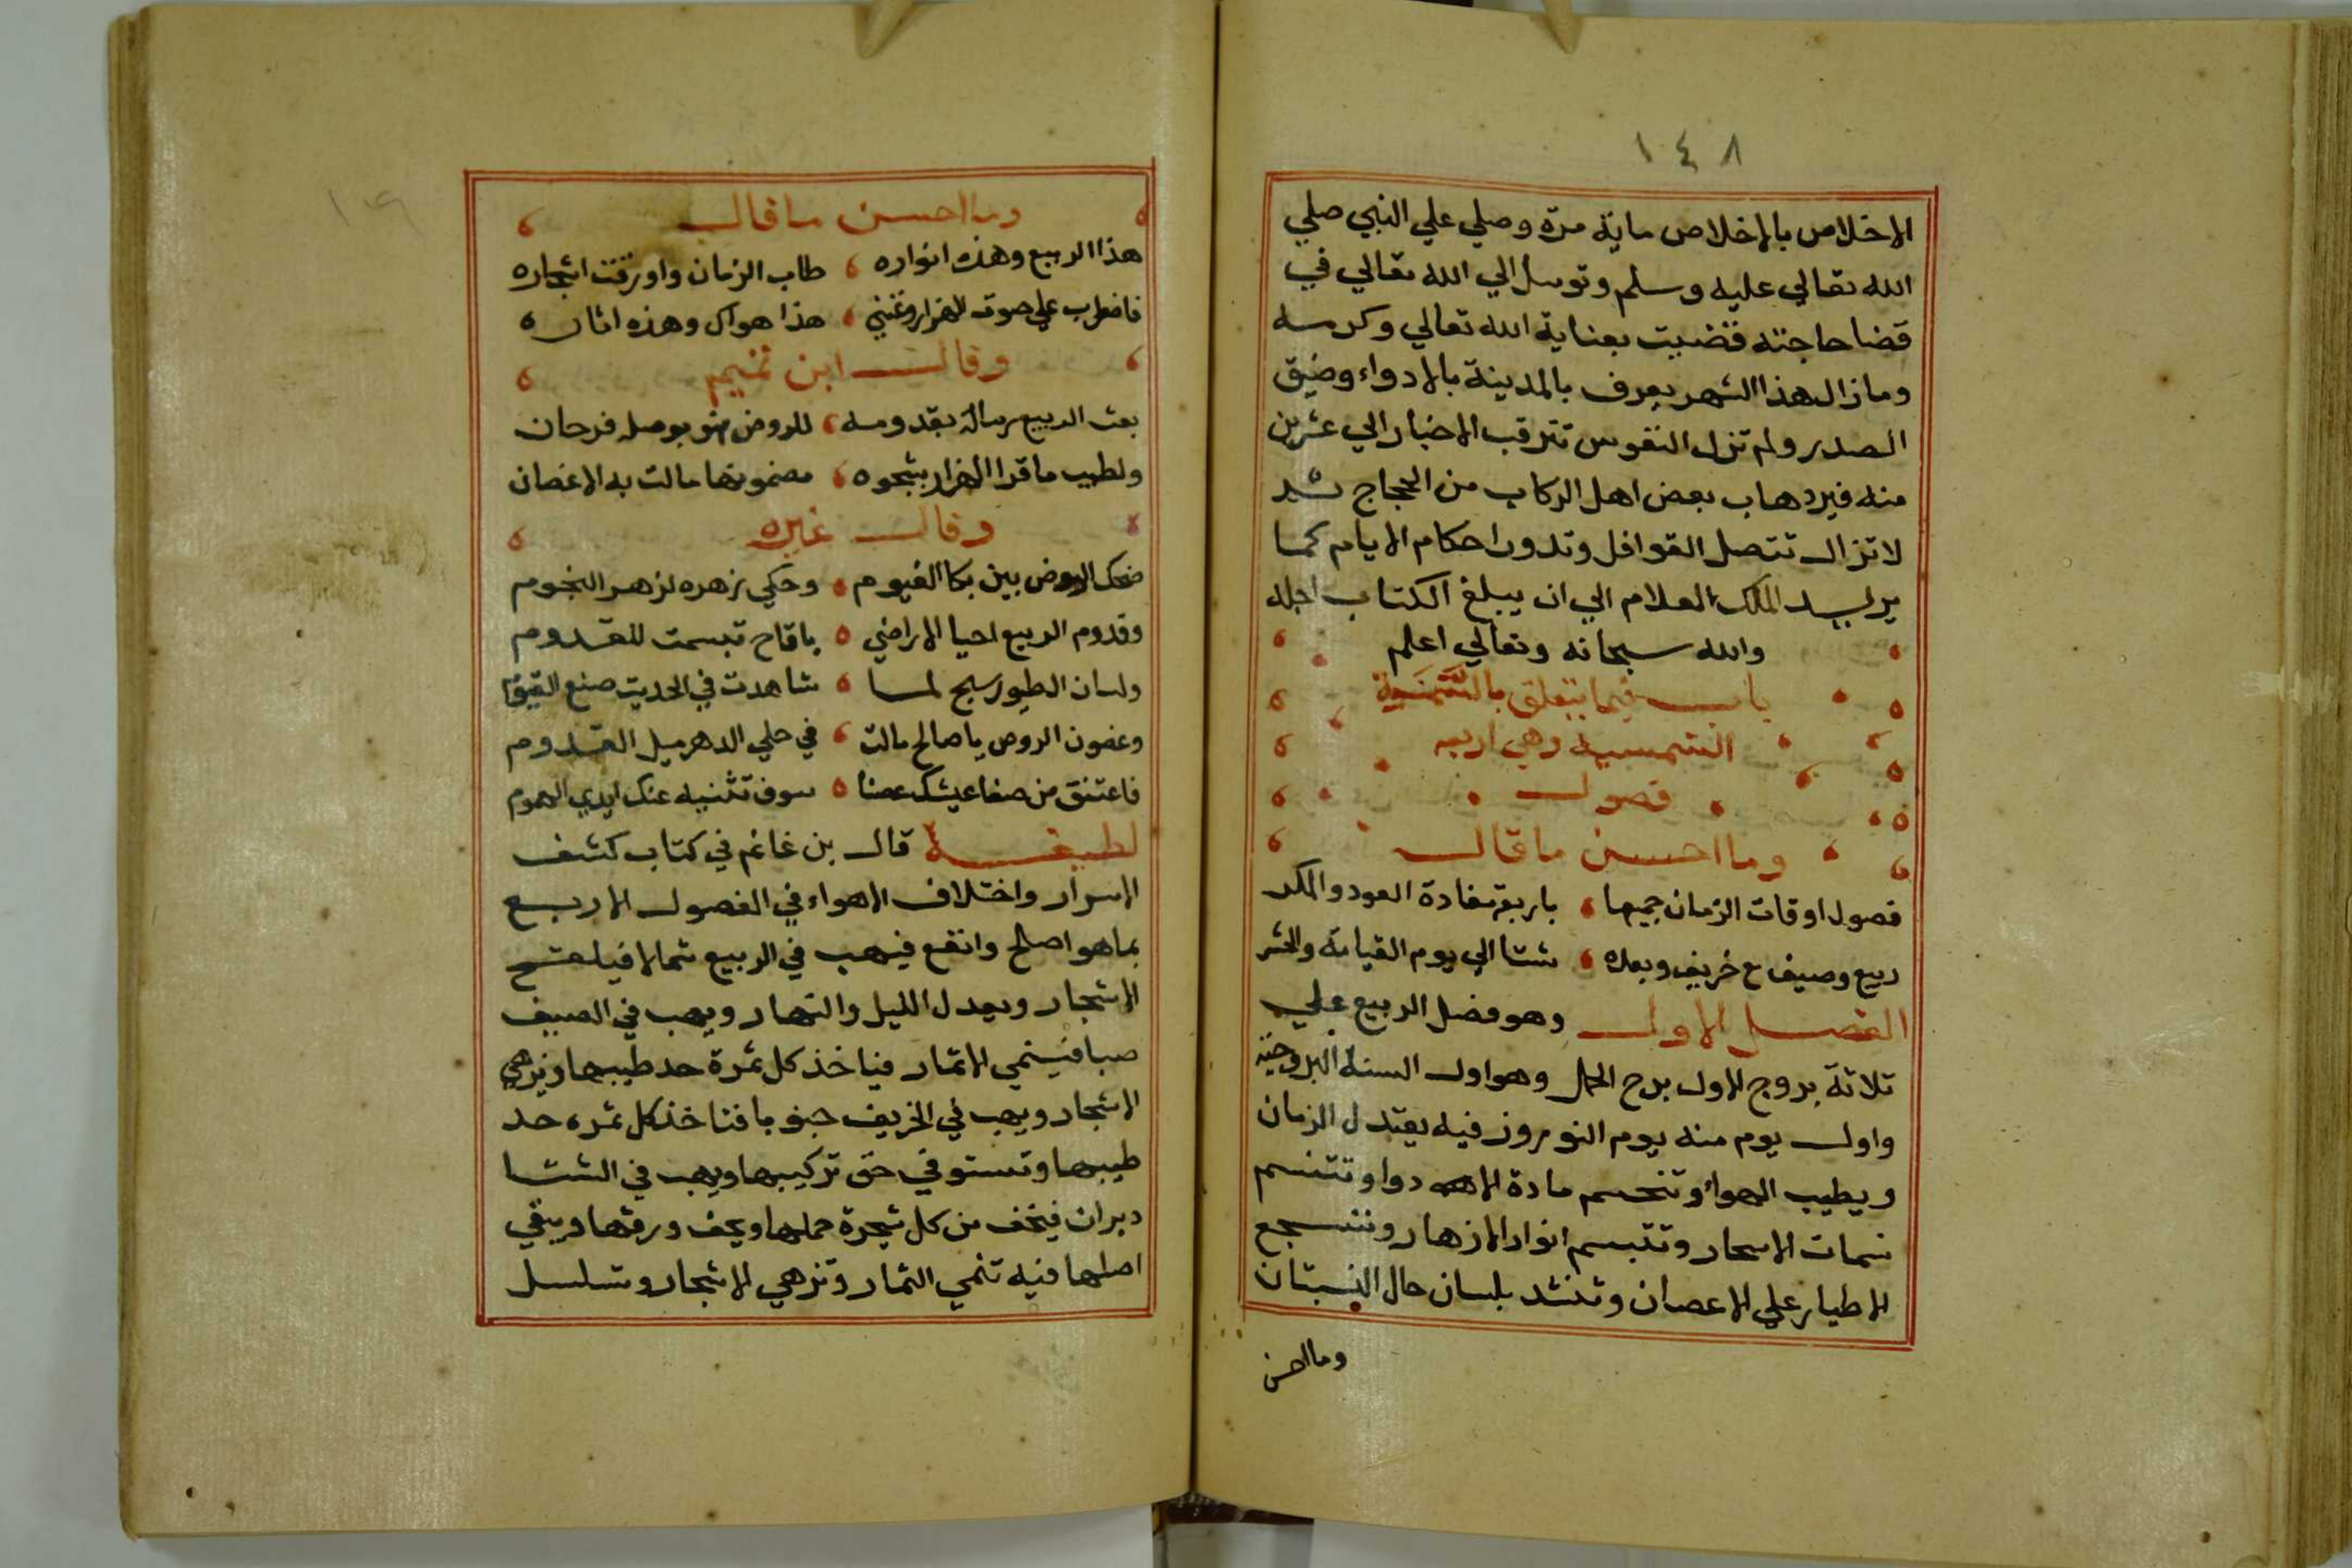 ١٤٨
الاخلاص بالاخلاص ماية مرة وصلي علي النبي صلي
الله تعالي عليه وسلم وتوسل الي الله تعالي في
قضا حاجته قضيت بعناية الله تعالي وكرمه
وما زال هذا الشهر يعرف بالمدينة بالادواء وضيق
الصدر ولم تزل النفوس تترقب الاخبار الي عشرين
منه فيرد هاب بعض اهل الركاب من الحجاج ثم
لا تزال تتصل القوافل وتدور احكام الايام كما
يريد الملك العلام الي ان يبلغ الكتاب اجله
والله سبحانه وتعالي اعلم
باب فيما يتعلق بالسنة
الشمسية وهي اربعة
فصول
وما احسن ما قال
فصول اوقات الزمان جميعها باربعة معادة العود والمكر
ربيع وصيف ع خريف وبعده شتا الي يوم القيامة والحشر
الفصل الاول وهو فصل الربيع علي
ثلاثة بروج الاول برج الحمل وهو اول السنة البروجية
واول يوم منه يوم النوروز فيه يعتدل الزمان
ويطيب الهواء وتنحسم مادة الادوا وتتنسم
نسمات الاسحار وتتبسم انوار الازهار وتسجع
الاطيار علي الاعصان وتنشد بلسان حال البستان
وما احسن
وما احسن ما قال
هذا الربيع وهذه انواره طاب الزمان واورقت اشجاره
فاضرب علي صوت الهزار وغنني هذا هواك وهذه اثاره
وقال ابن تميم
بعث الربيع رسالة بقدومه للروض فهو بوصله فرحان
ولطيب ما قرا الهزار بشجوه مضمونها مالت به الاغصان
وقال غيره
ضحك الروض بين بكا الغيوم وحكي زهره لزهر النجوم
وقدوم الربيع احيا الاراضي باقاح تبسمت للقدوم
ولسان الطيور سبح لما شاهدت في الحديث صنع القيوم
وغصون الروض يا صالح مالت في حلي الدهر ميل القدوم
فاغتنق من صفا عيشك غصنا سوف تثنيه عنك ايدي الهموم
لطيفة قال بن غانم في كتاب كشف
الاسرار واختلاف الاهواء في الفصول الاربع
بما هو اصلح وانفع فيهب في الربيع شمالا فيلقح
الاشجار ويعدل الليل والنهار ويهب في الصيف
صبا فينمي الاثمار فياخذ كل ثمرة حد طيبها ويزهي
الاشجار ويهب في الخريف جنوبا فتاخذ كل ثمره حد
طيبها وتستوفي حق تركيبها ويهب في الشتا
دبران فيخف من كل شجرة حملها ويجف ورقها ويبقي
اصلها فيه تنمي الثمار وتزهي الاشجار وتسلسل